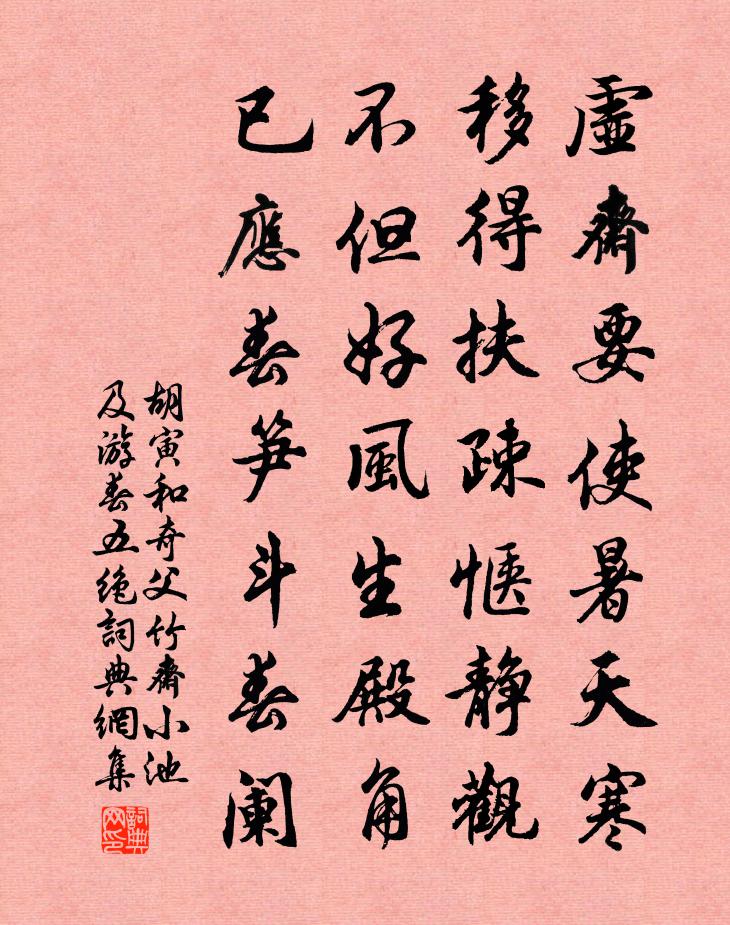 虛齋要使暑天寒
移得扶疎愜靜觀
不但好風生殿角
已應春笋斗春闌
胡寅和奇父竹齋小池
及游春五絶詞典網集
詞典网印